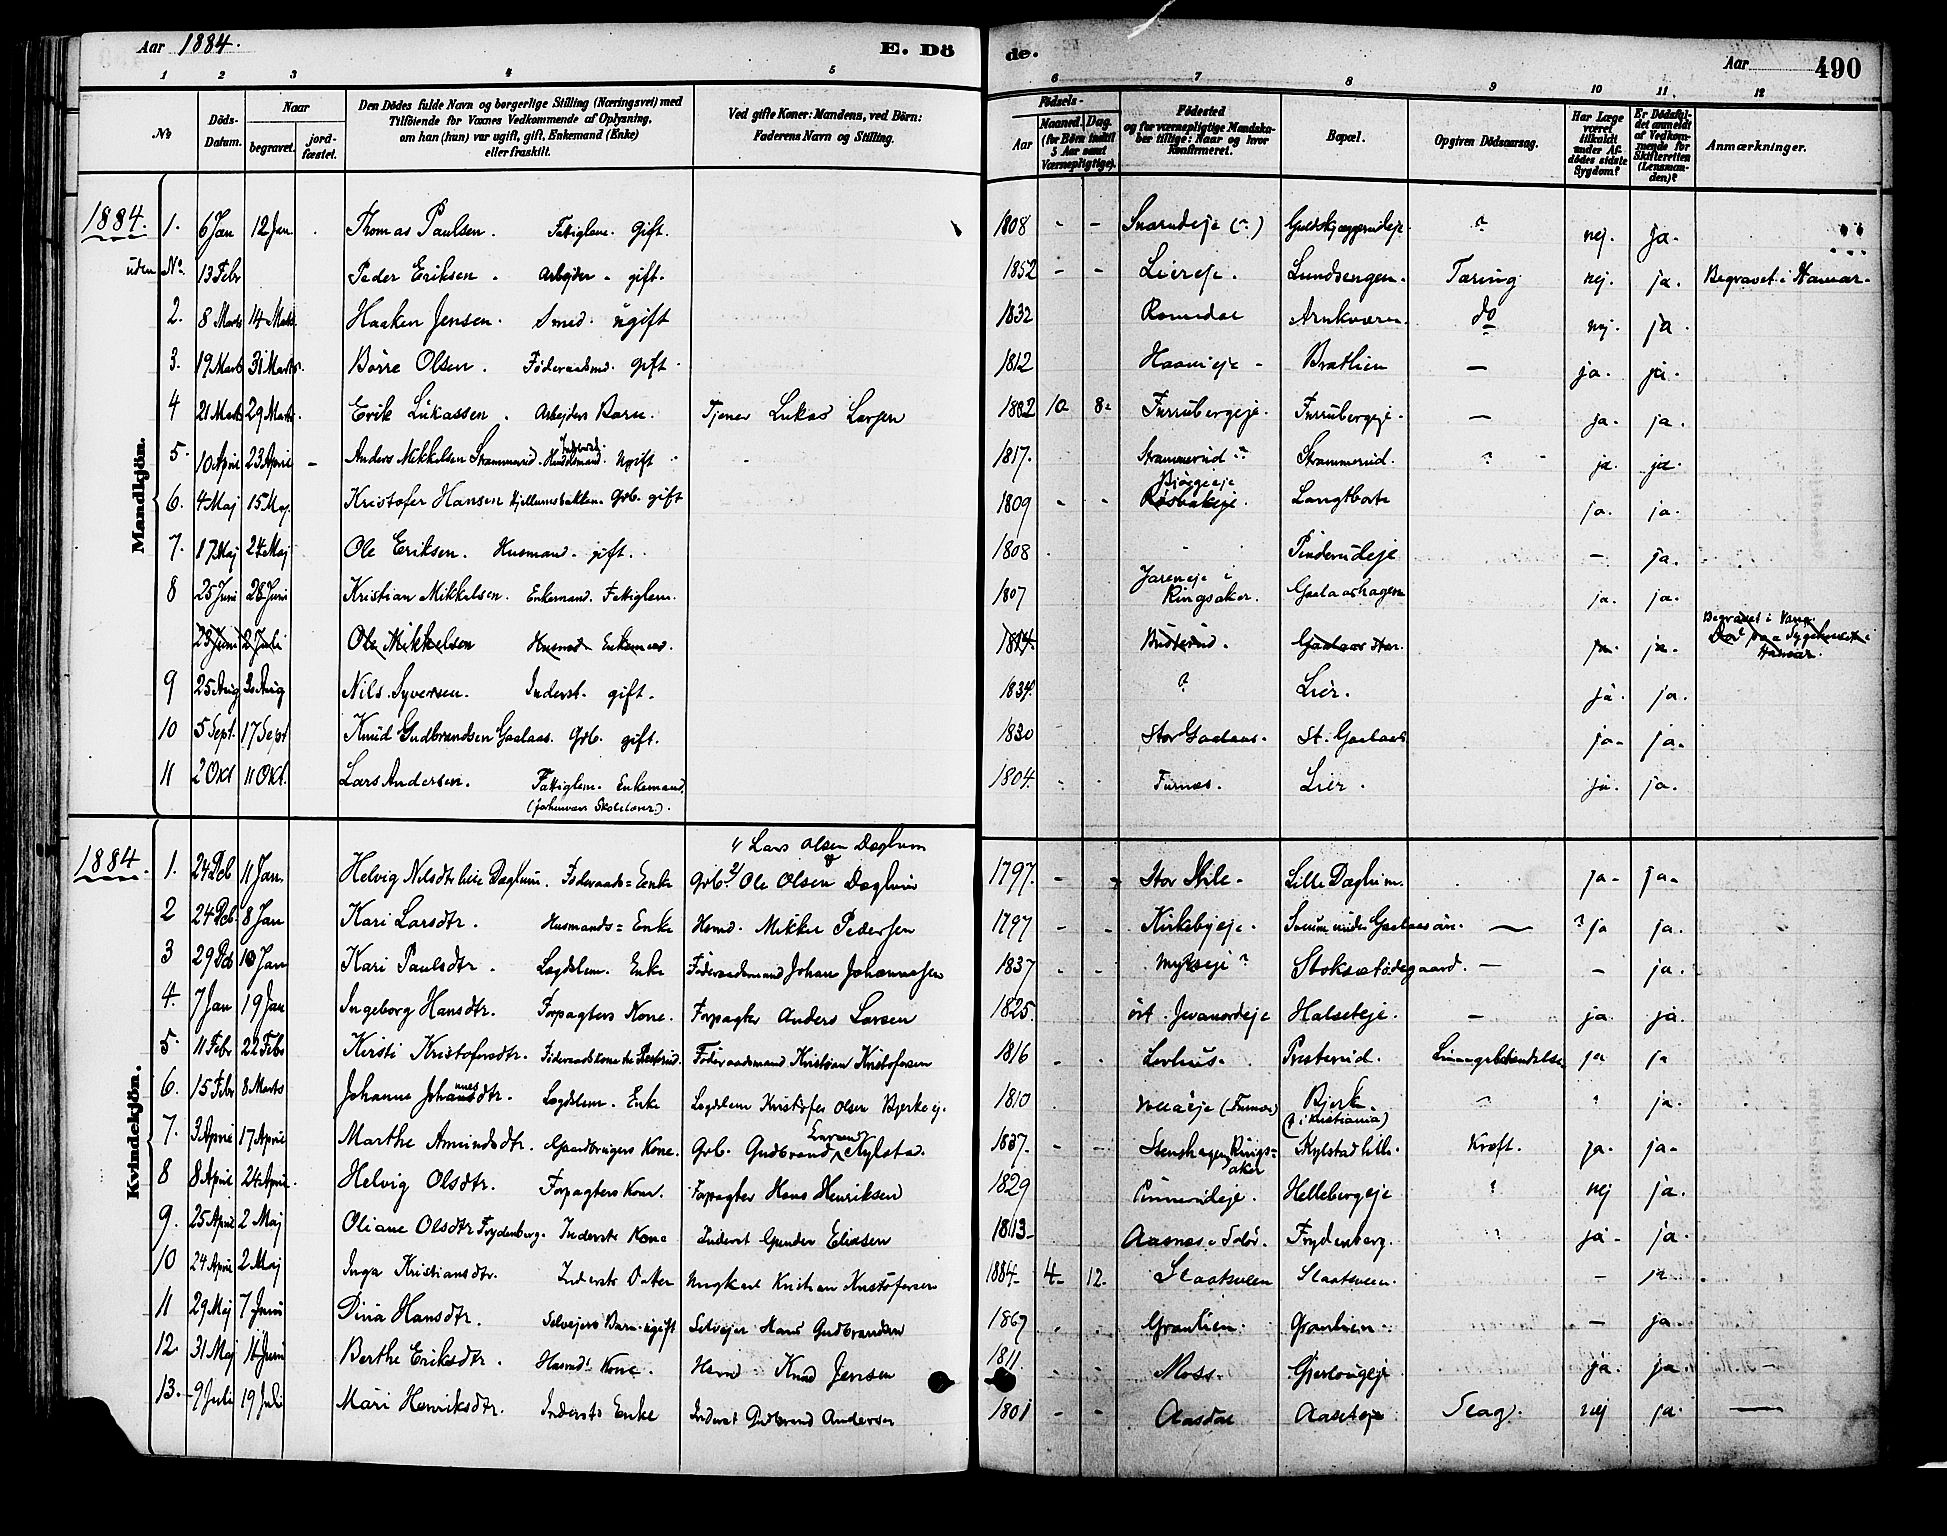 Aar 1884. E. Dö
de. Aar 490
1 2 3 4 5 6 7 8 9 10 11. 12
No Döds-Datum. Naar begravet. jord-fæstet. Den Dödes fulde Navn og borgerlige Stilling (Næringsvei) med Tilföiende for Voxnes Vedkommende af Oplysning, om han (hun) var ugift, gift, Enkemand (Enke) eller fraskilt. Ved gifte Koner: Mandens, ved Börn: Faderens Navn og Stilling.
Födsels- Aar Maaned. Dag. (for Börn indtil 5 Aar samt Værnepligtige). Födested og for værnepligtige Mandska-ber tillige: Naar og hvor Konfirmeret. Bopæl. Opgiven Dödsaarsag. Har Læge været tilkaldt under Af-dödes sidste Sygdom? Er Dödsfal-det anmeldt af Vedkom-mende for Skifteretten (Lensman-den)? Anmærkninger.
Mandkjön.
1884. 1. 6 Jan 12 Jan Thomas Paulsen. Fattiglem. gift. 1808 - - Snarudeje (?) ? nej. ja.
uden No. 13 Febr Peder Eriksen. Arbejder - gift. 1852 - - Liereje. Lundsengen. Tæring nej. ja. Begravet i Hamar.
2. 8 Marts 14 Marts Haaken Jensen. Smed. ugift 1832 Romedal Arnkværn. do nej. ja.
3. 19 Marts 31 Marts. Börre Olsen. Föderaadsmd. gift. 1812 Haavieje - Bratlien - ja. ja.
4 21 Marts 29 Marts. Erik Lukassen. Arbejders Barn. Tjener Lukas Larsen 1882 10 8 Furrubergeje. Furrubergeje. - ja. ja.
5. 10 April 23 April - Anders Mikkelsen Strammerud. Husmand. Ugift 1817. Strammerud ? Strammerud. ? ja ja.
6. 4 Maj 15 Maj. Kristofer Hansen Kjellumsbakken. Grb. gift 1809 - - Bjørgeeje Langtborte ja. ja.
7. 17 Maj 24 Maj Ole Eriksen. Husmand. gift. 1808 Pinderudeje - ja.
8 25 Juni 28 Juni Kristian Mikkelsen. Enkemand. Fattiglem. 1807 Jareneje i Ringsaker. Gaalaashagen ja. ja.
23 Juni 2 Juli Ole Mikkelsen Husmd. Enkemand. 1814 Budterud. Gaalaas ja. ja. Begravet i Vang. Död paa Sygehuset i Hamar.
9 25 Aug 30 Aug Nils Syversen. Inderst. gift. 1834. ? Lier. ja. ja.
10 5 Sept. 17 Sept Knud Gudbrandsen Gaalaas. Grb. gift. 1830 Stor Gaalaas. St. Gaalaas ja. ja.
11 2 Okt 11 Okt. Lars Andersen. Fattiglem. Enkemand. (forhenvær. Skolelærer). 1804. Furnes. Lier. ja. ja.
Kvindekjön.
" Lars Olsen Daglum
1884. 1. 24 Dcb 11 Jan. Helvig Nilsdtr lille Daglum. Föderaads= Enke Grb. Ole Olsen Daglum 1797. - Stor Hile. Lille Daglum. ja. ja.
2 24 Dcb. 8 Jan Kari Larsdtr. Husmands= Enke Hsmd. Mikkel Pedersen 1797 - - Kirkebyeje. Sveum under Gaalaas ? ja ja.
3 29 Dcb 10 Jan Kari Paulsdtr. Lægdslem. Enke Föderaadsmand Johan Johannessen 1837 - - Myhreje ? Stoksetödegaard. - - ja.
4. 7 Jan 19 Jan Ingeborg Hansdtr. Forpagters Kone. Forpagter Anders Larsen 1825. öst. Jevanordeje Halseteje. - ja. ja.
5. 11 Febr 22 Febr Kirsti Kristofersdtr. Föderaadskone Föderaadsmand Kristian Kristofersen 1816 - - Lovhus. Presterud. Lungebetændelse ja ja
6. 15 Febr 8 Marts Johanne Johannesdtr. Lægdslem. Enke Lægdslem Kristofer Olsen Bjerke ej. 1810 (Furnes) Bjerk. ? ? ja.
(? i Kristiania)
7. 3 April 17 April Marthe Amundsdtr. Gaardbrugers Kone. Grb. Gudbrand Kylstad. 1837. - - Stenshagen Rings=aker Kylstad lille. Kræft. ja. ja.
8 8 April 24 April. Helvig Olsdtr. Forpagters Kone. Forpagter Hans Henriksen 1829 Pinnerudeje. Hellebergeje ? nej ja.
9. 25 April 2 Maj Oliane Olsdtr Frydenberg. Indersts Kone Inderst Gunder Eliasen 1813 Aasnes i Solör. Frydenberg. ? ja. ja.
10 24 April 2 Maj Inga Kristiansdtr. Inderst Datter Ungkarl Kristian Kristofersen 1884 4 12. Slaatsveen Slaatsveen. - ja.
11 29 Maj 7 Juni Dina Hansdtr. Selvejers Barn ugift Selvejer Hans Gudbrandsen 1867 Granlien. Granlien. - ja.
12. 31 Maj 11 Juni Berthe Eriksdtr. Husmds Kone. Hsmd. Knud Jensen 1811 - - Moss. Gjerlougeje ja. ja. -
13. 9 Juli 19 Juli Mari Henriksdtr. Indersts Enke Inderst Gudbrand Andersen 1801 - - Aasdal Aaseteje Slag. nej ja. -